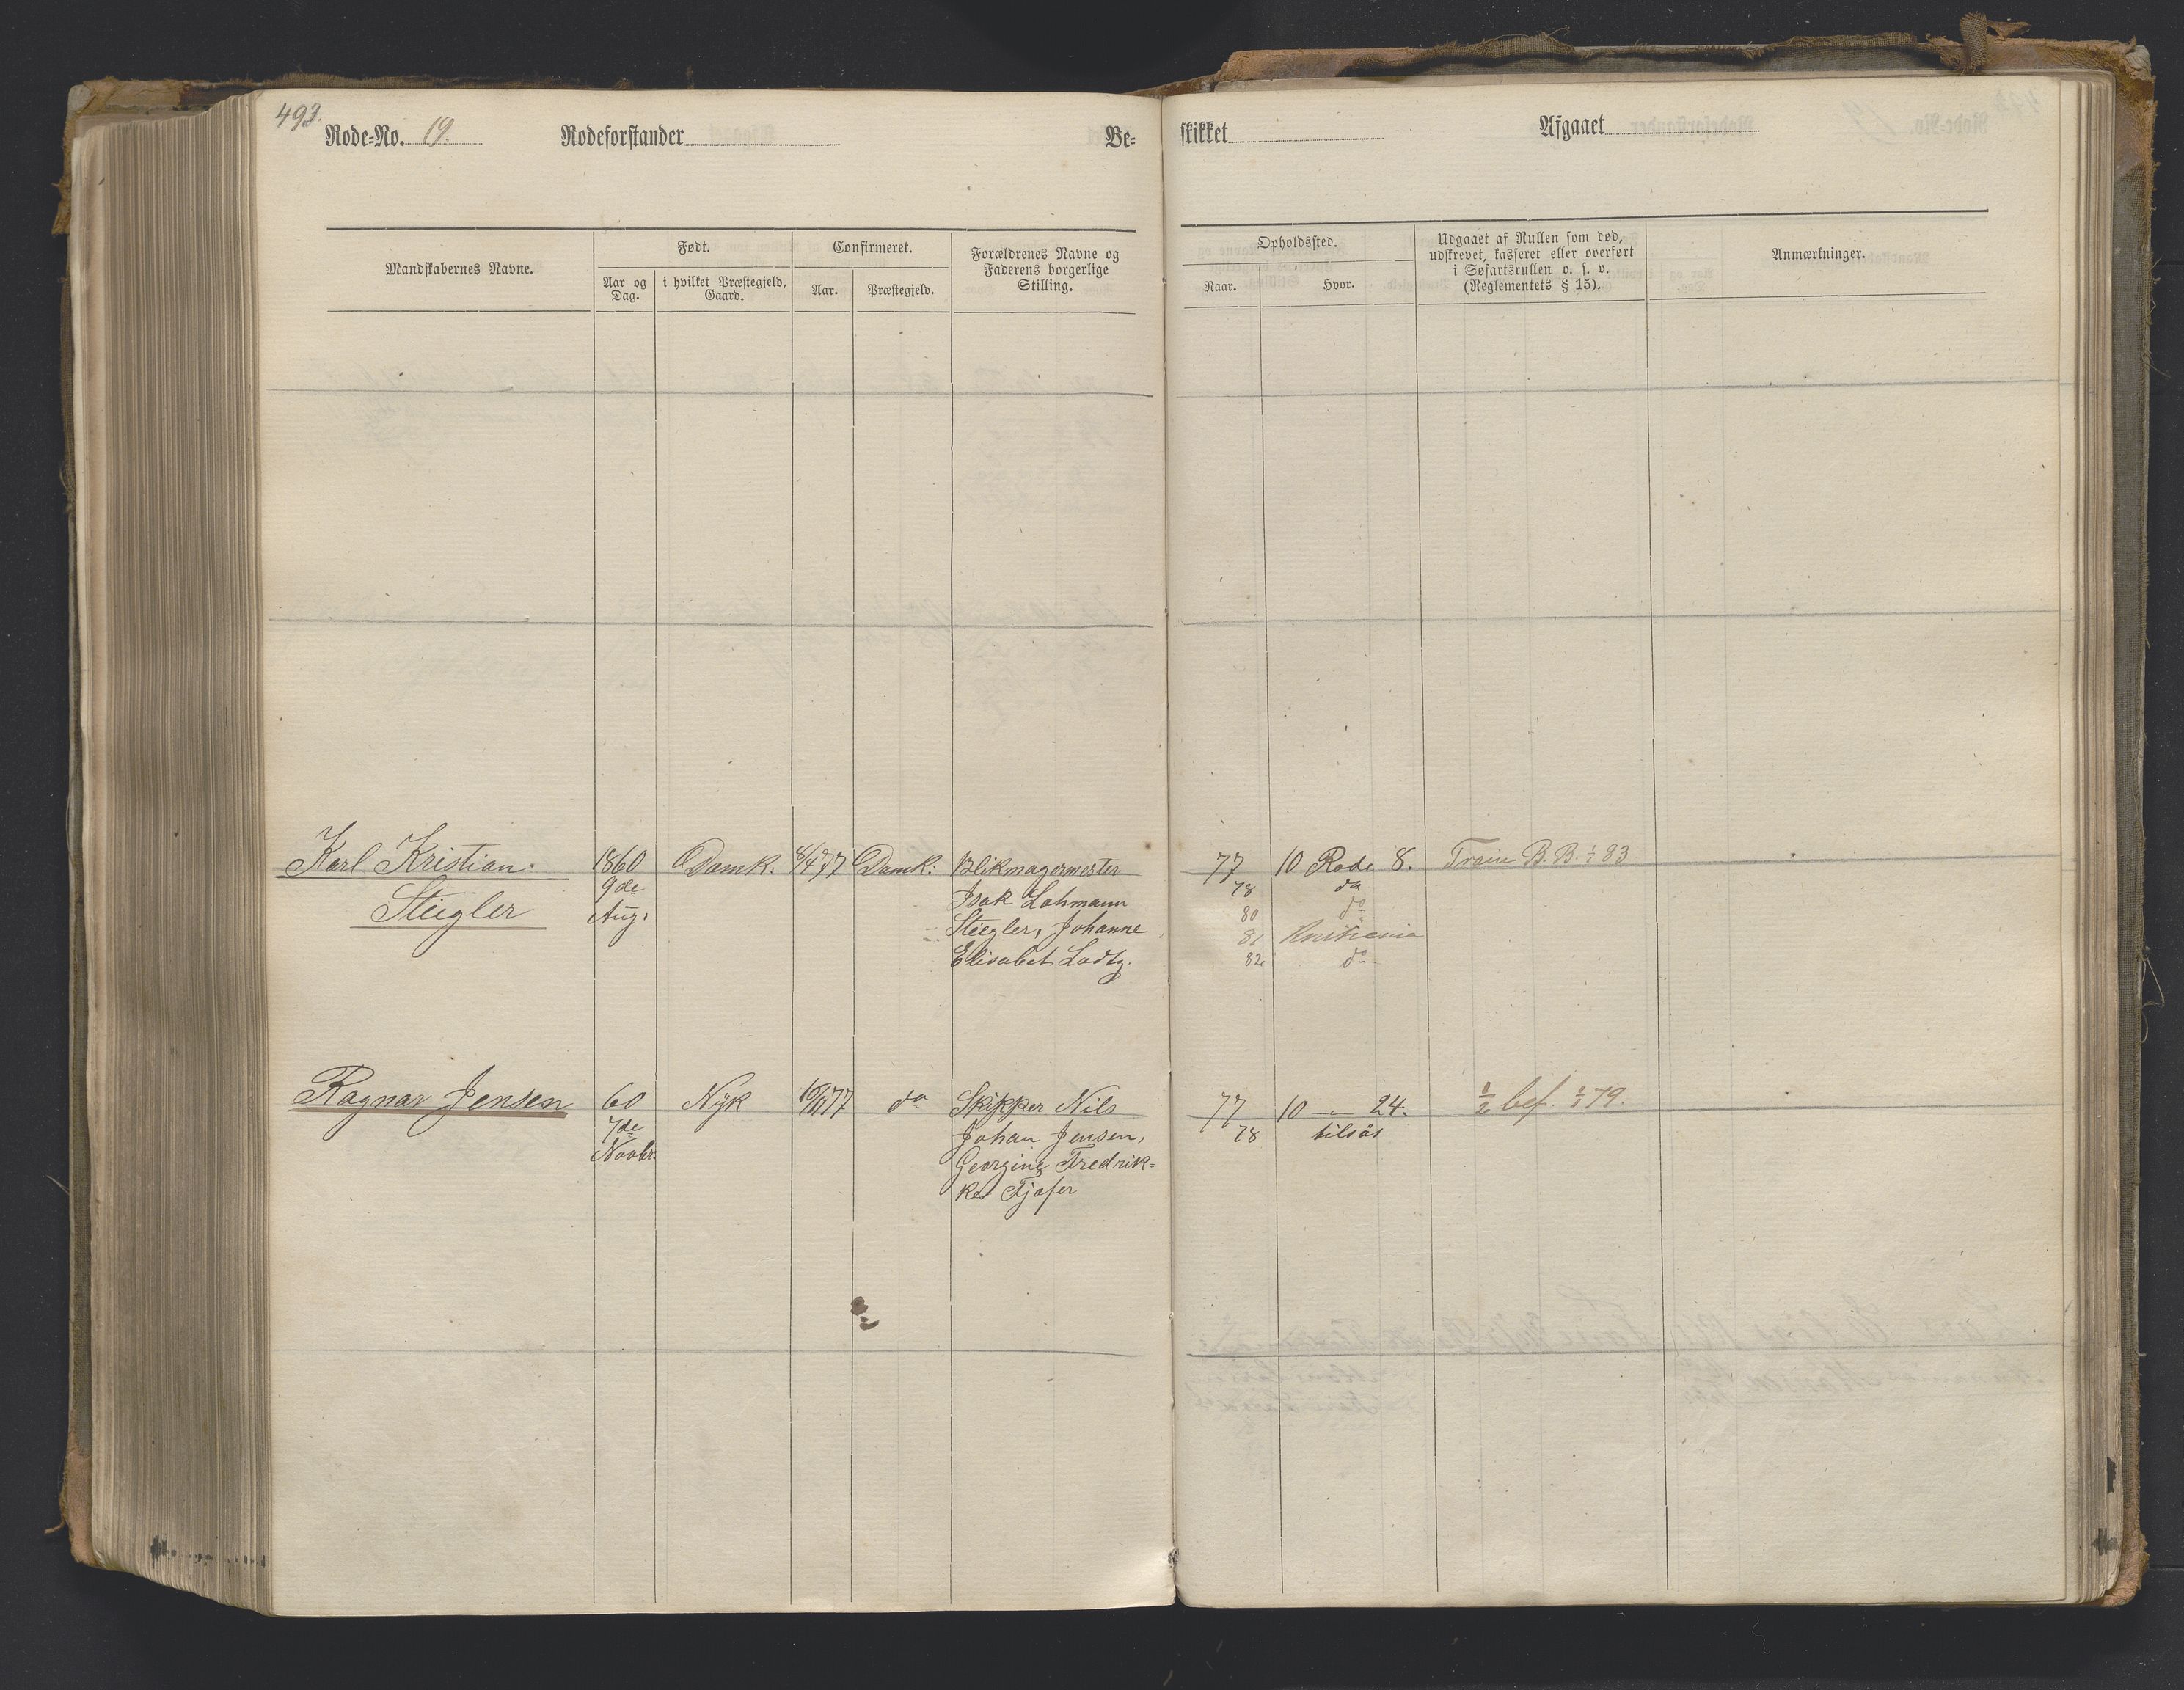 493.
Rode-No. 19. Rodeforstander Be- skikket Afgaaet
Mandskabernes Navne.
Født.
Aar og Dag.
i hvilket Præstegjeld, Gaard.
Confirmeret.
Aar.
Præstegjeld.
Forældrenes Navne og
Faderens borgerlige
Stilling.
Opholdssted.
Naar.
Hvor.
Udgaaet af Rullen som død,
udskrevet, kasseret eller overført
i Søfartsrullen o. s. v.
(Reglementets § 15).
Anmærkninger.
Karl Kristian 1860 Domk: 8/4 77 Domk: Blikmagermester 77 10 Rode 8. Train B. B. 1/1 83
9de Isak Lohmann 78 do
Stiegler Aug. Stiegler, Johanne 80 do
Elisabet Ladtz. 81 Kristiania
82 do
Ragnar Jensen 60 Nyk 77 do Skipper Nils 77 10 — 24. 1/2 bef. 1/1 79.
7de Johan Jensen, 78 tilsøs
Novbr. Georgine Fredrik-
ke